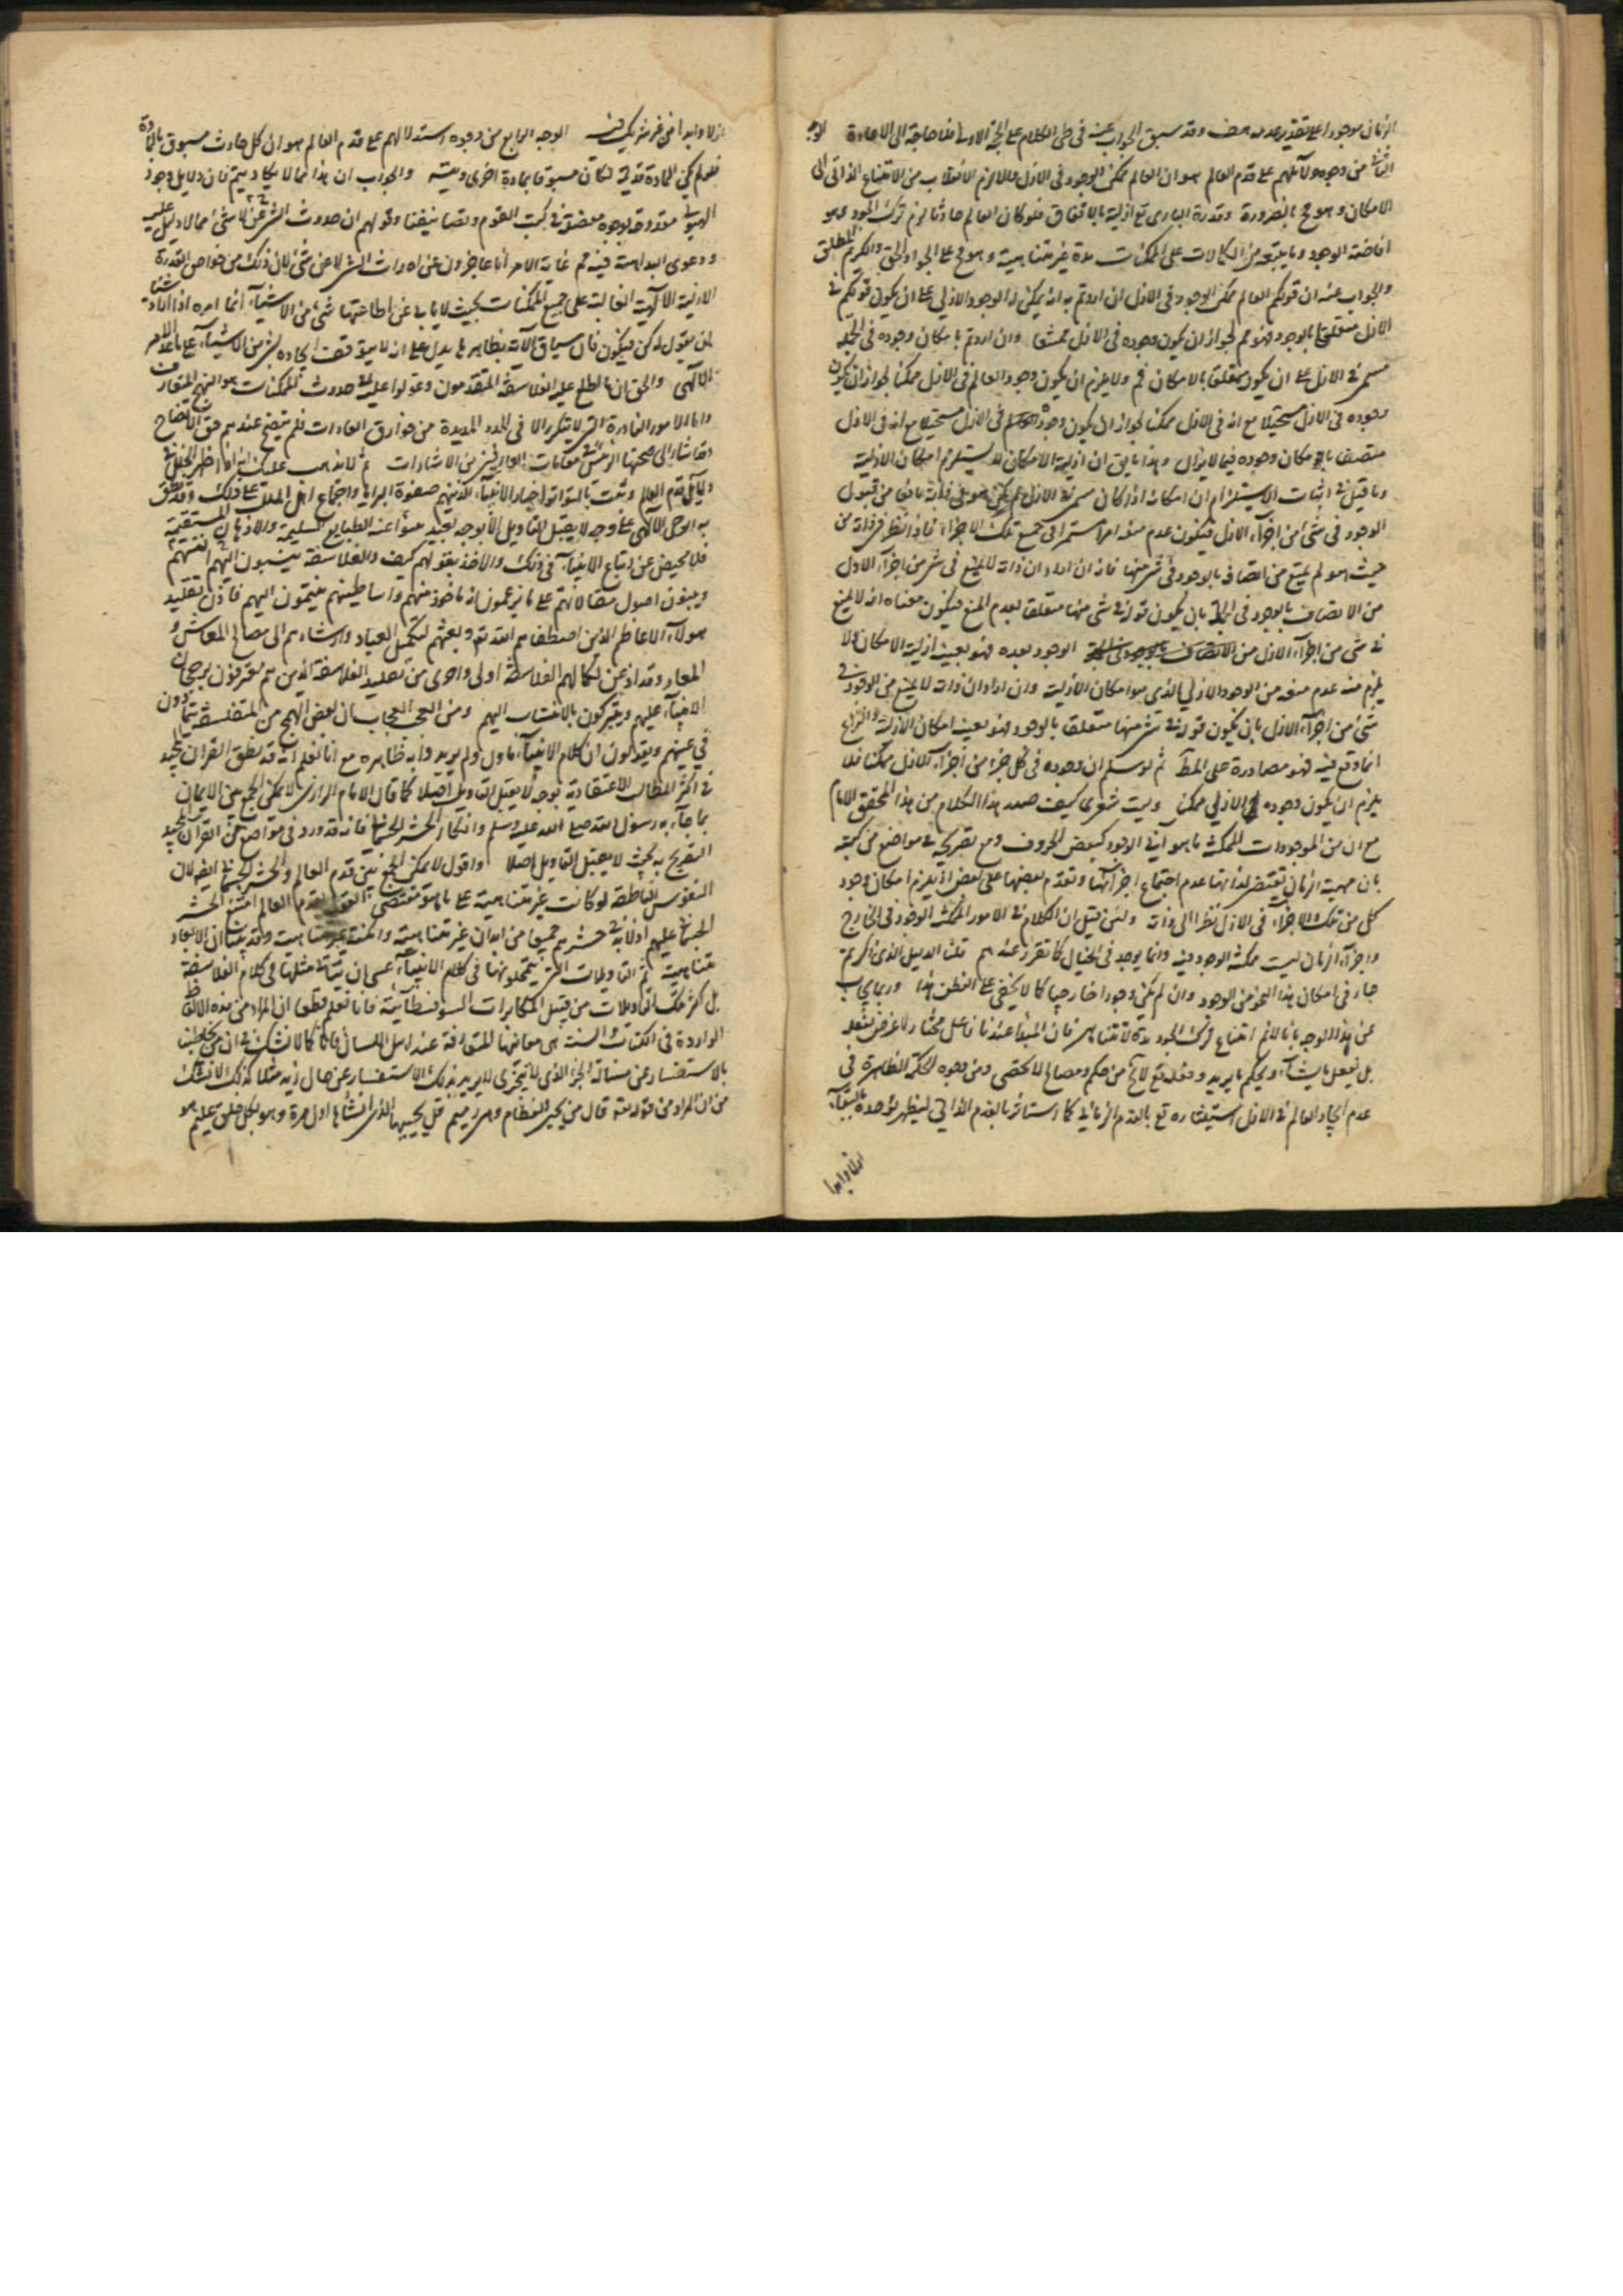 الزمان موجودا على تقدير عدمه هف وقد سبق الجواب عنه فى طى الكلام على الحجة الاولى فلا حاجة الى الاعادة الوجه
الثالث من وجوه دلائلهم على قدم العالم هو ان العالم ممكن الوجود فى الازل والا لزم الانقلاب من الامتناع الذاتى الى
الامكان وهو مح بالضرورة وقدرة البارى تع ازلية بالاتفاق فلو كان العالم حادثا لزم ترك الجود وهو
افاضة الوجود وما يتبعه من الكمالات على الممكنات مدة غير متناهية وهو مح على الجواد الحق والكريم المطلق
والجواب عنه ان قولكم العالم ممكن الوجود فى الازل ان اردتم به انه يمكن له الوجود الازلى على ان يكون قولكم فى
الازل متعلقا بالوجود فهو مم لجواز ان يكون وجوده فى الازل ممتنعا وان اردتم به امكان وجوده فى الجملة
مستمر فى الازل على ان يكون متعلقا بالامكان فم ولا يلزم ان يكون وجود العالم فى الازل ممكنا لجواز ان يكون
وجوده فى الازل مستحيلا مع انه فى الازل
متصف بامكان وجوده فيما لا يزال وهذا ما يق ان ازلية الامكان لا يستلزم امكان الازلية
وما قيل فى اثبات الاستلزام ان امكانه اذا كان مستمرا فى الازل لم يكن هو فى ذاته مانعا من قبول
الوجود فى شئ من اجزاء الازل فيكون عدم منعه امرا مستمرا فى جميع تلك الاجزاء فاذا نظر فى ذاته من
حيث هو لم يمتنع من اتصافه بالوجود فى شئ منها فانه ان اراد ان ذاته لا يمنع فى شئ من اجزاء الازل
من الاتصاف بالوجود فى الجملة بان يكون قوله فى شئ منها متعلقا بعدم المنع فيكون معناه انه لا يمنع
فى شئ من اجزاء الازل من الوجود بعده فهو بعينه ازلية الامكان ولا
يلزم منه عدم منعه من الوجود الازلى الذى هو امكان الازلية وان اراد ان ذاته لا يمنع من الوجود فى
شئ من اجزاء الازل بان يكون قوله فى شئ منها متعلقا بالوجود فهو بعينه امكان الازلية والنزاع
انما وقع فيه فهو مصادرة على المط ثم لو سلم ان وجوده فى كل جزء من اجزاء الازل ممكن فلا
يلزم ان يكون وجوده الازلى ممكن وليت شعرى كيف صدر هذا الكلام من هذا المحقق الامام
مع ان من الموجودات الممكنة ما هو انى الوجود كبعض الحروف ومع تصريحه فى مواضع من كتبه
بان مهية الزمان تقتضى لذاتها عدم اجتماع اجزائها وتقدم بعضها على بعض اذ يلزم امكان وجود
كل من تلك الاجزاء فى الازل نظرا الى ذاته ولئن قيل ان الكلام فى الامور الممكنة الوجود فى الخارج
واجزاء الزمان ليست ممكنة الوجود فيه وانما يوجد فى الخيال كما تقرر عندهم قلت الدليل الذى ذكرتم
جار فى امكان هذا النحو من الوجود وان لم يكن وجودا خارجيا كما لا يخفى على الفطن هذا وربما يجاب
عن هذا الوجه بانا لا نم امتناع ترك الجود مدة لا تتناهى فان المبدأ عندنا فاعل مختار لا غرض لفعله
بل يفعل ما يشاء ويحكم ما يريد وفعله تع لايخ من حكم ومصالح لا تحصى ومن وجوه الحكمة الظاهرة فى
عدم ايجاد العالم فى الازل استيثاره تع بالقدم الزمانى كما استاثر بالقدم الذاتى ليظهر توحده بالبقاء
ازلا وابدا
ازلا وابدا من غير شريك فيه الوجه الرابع من وجوه استدلالهم على قدم العالم هو ان كل حادث مسبوق بالمادة
فلو لم يكن المادة قديمة لكان مسبوقا بمادة اخرى ويتسـ والجواب ان هذا مما لا يكاد يتم فان دلايل وجود
الهيولى مقدوحة بوجوه مفصلة فى كتب القوم وتصانيفنا وقولهم ان حدوث الشئ عن لا شئ مما لا دليل عليه
ودعوى البداهة فيه مم غاية الامر انا عاجزون عن احداث الشئ لا عن شئ لان ذلك من خواص القدرة
الازلية الالهية الغالبة على جميع الممكنات بحيث لا يابى عن اطاعتها شئ من الاشياء انما امره اذا اراد شيئا
ان يقول له كن فيكون فان سياق الاية بظاهرها يدل على انه لا يتوقف ايجاده لشئ من الاشياء على ما عدا الامر
الالهى والحق ان ما اطلع عليه الفلاسفة المتقدمون وعولوا عليه فى حدوث الممكنات هو النهج المتعارف
واما الامور النادرة التى لا يتكرر الا فى المدد المديدة من خوارق العادات فلم يتضح عندهم حق الاتضاح
وقد اشار الى صحتها الرئيس فى مقامات العارفين من الاشارات ثم لا يذهب عليك انه اذا ظهر الخلل فى
دلايل قدم العالم وثبت بالتواتر واخبار الانبياء الذين هم صفوة البرايا واجماع اهل الملل على ذلك وقد نطق
به الوحى الالهى على وجه لا يقبل التاويل الا بوجه بعيد يتبرأ عنه الطبايع السليمة والاذهان المستقيمة
فلا محيص عن اتباع الانبياء فى ذلك والاخذ بقولهم كيف والفلاسفة ينسبون اليهم انفسهم
ويبنون اصول مقالاتهم على ما يزعمون انه ماخوذ منهم واساطينهم ينتمون اليهم فاذن تقليد
هؤلاء الاعاظم الذين اصطفاهم الله تع وبعثهم لتكميل العباد وارشادهم الى مصالح المعاش و
المعاد وقد اذعن لكمالهم الفلاسفة اولى واحرى من تقليد الفلاسفة الذين هم معترفون برجحان
الانبياء عليهم ويتبركون بالانتساب اليهم ومن العجب العجاب ان بعض الهمج من المتفلسفة يتمادون
فى غيهم ويقولون ان كلام الانبياء مأول ولم يريدوا به ظاهره مع انا نعلم انه قد نطق القران المجيد
فى اكثر المطالب الاعتقادية بوجه لا يقبل التاويل اصلا كما قال الامام الرازى لا يمكن الجمع بين الايمان
بما جاء به رسول الله صلى الله عليه وسلم وانكار الحشر الجسمانى فانه قد ورد فى مواضع من القران المجيد
التصريح به بحيث لا يقبل التاويل اصلا واقول لا يمكن الجمع بين قدم العالم والحشر الجسمانى ايضا لان
النفوس الناطقة لو كانت غير متناهية على ما هو مقتضى القول بقدم العالم امتنع الحشر
الجسمانى عليهم اذ لا بد فى حشرهم جميعا من ابدان غير متناهية وامكنة غير متناهية وقد ثبت ان الابعاد
متناهية ثم التاويلات التى يتمحلونها فى كلام الانبياء عسى ان يتاتى مثلها فى كلام الفلاسفة
بل اكثر تلك التاويلات من قبيل المكابرات السوفسطائية فانا نعلم قطعا ان المراد من هذه الالفاظ
الواردة فى الكتاب والسنة هى معانيها المتعارفة عند اهل اللسان فانا كما لا نشك فى ان من يخاطبنا
بالاستفسار عن مسئلة الجزء الذى لا يتجزى لا يريد بذلك الاستفسار عن حال زيد مثلا كذلك لا نشك
من ان المراد من قوله تع قال من يحيى العظام وهى رميم قل يحييها الذى انشأها اول مرة وهو بكل خلق عليم هو